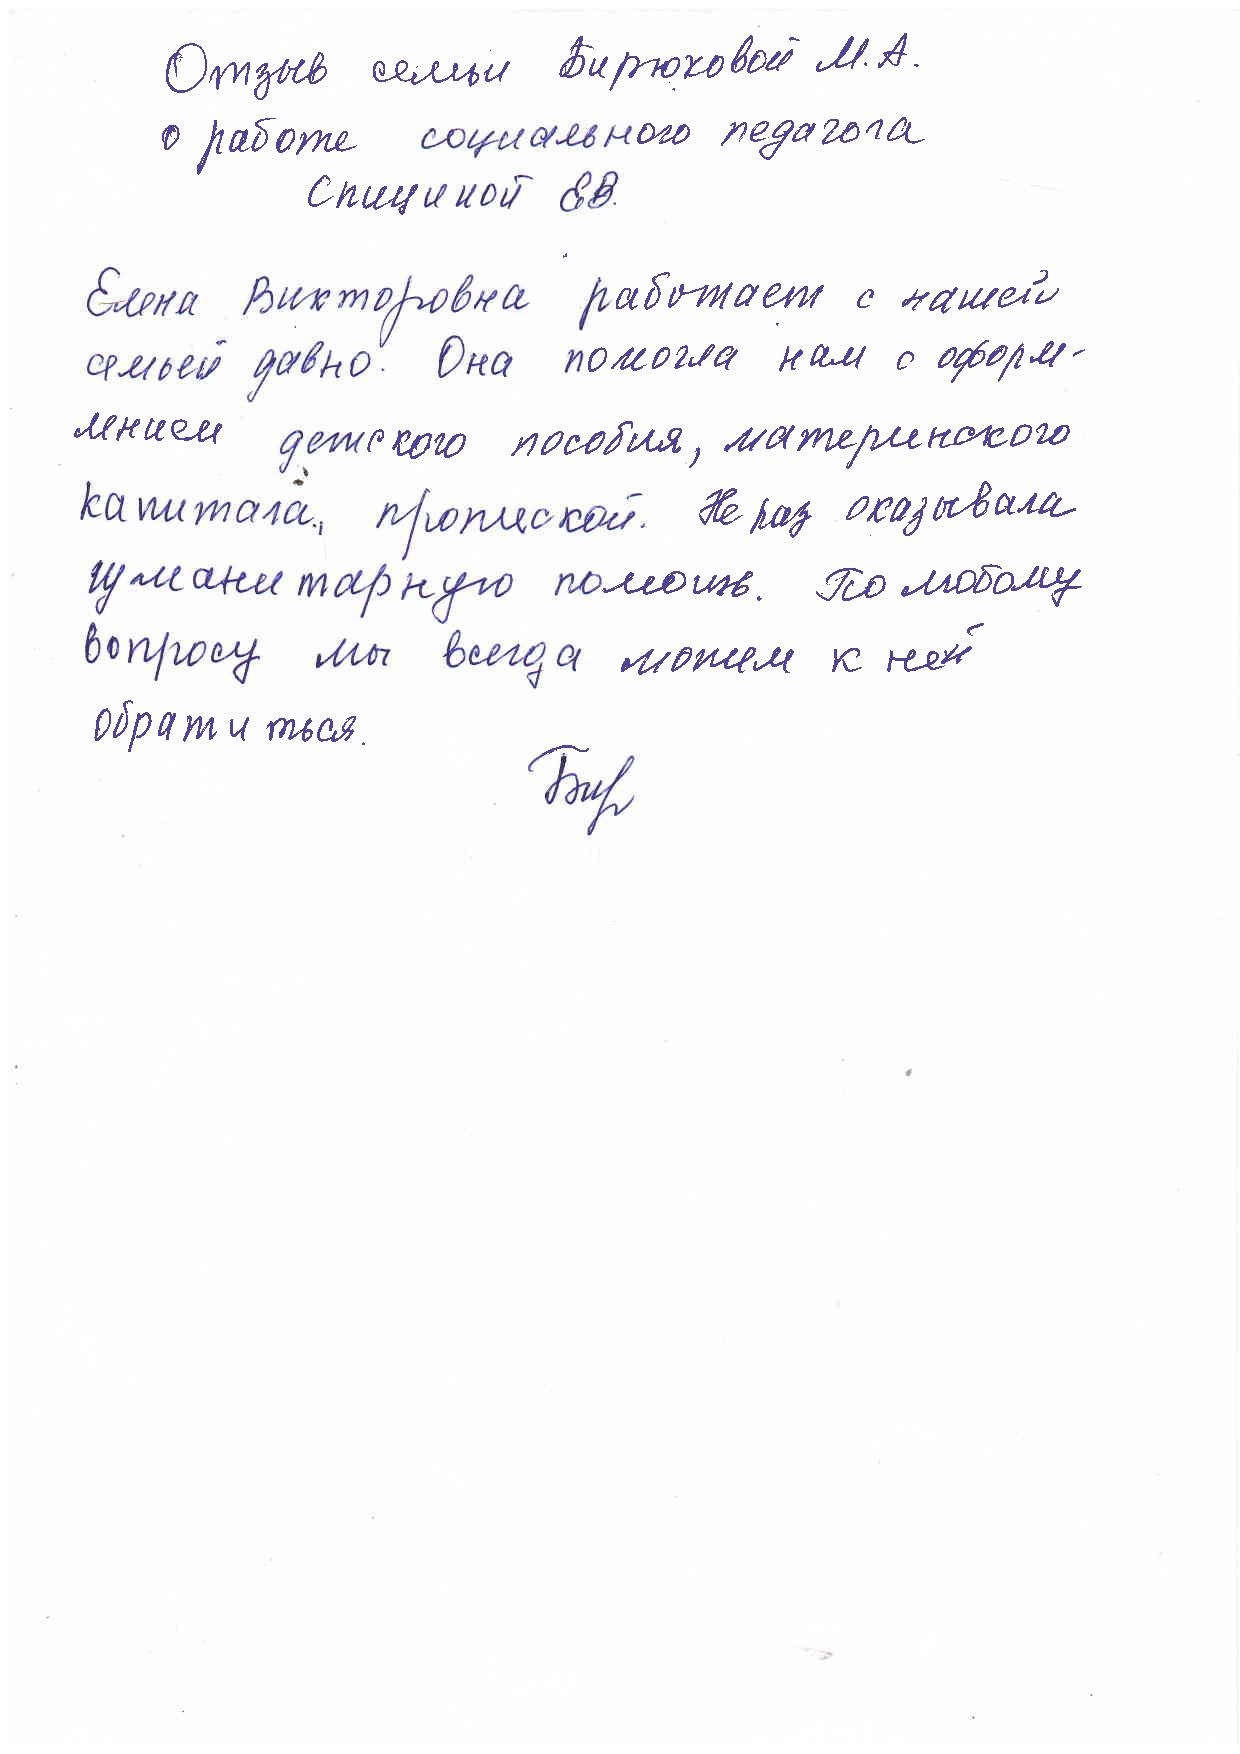 Отзыв семьи Бирюковой М.А.
о работе социального педагога
Спициной ЕВ.
Елена Викторовна работает с нашей
семьей давно. Она помогла нам с оформ-
лением детского пособия, материнского
капитала, пропиской. Не раз оказывала
гуманитарную помощь. По любому
вопросу мы всегда можем к ней
обратиться.
Бир